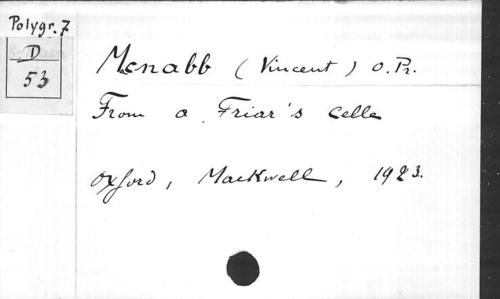 Polygr. 7
D
53
Mcnabb (Vincent) O.Pr.
From a Friar's Celle
Oxford, Mackwell, 1923.